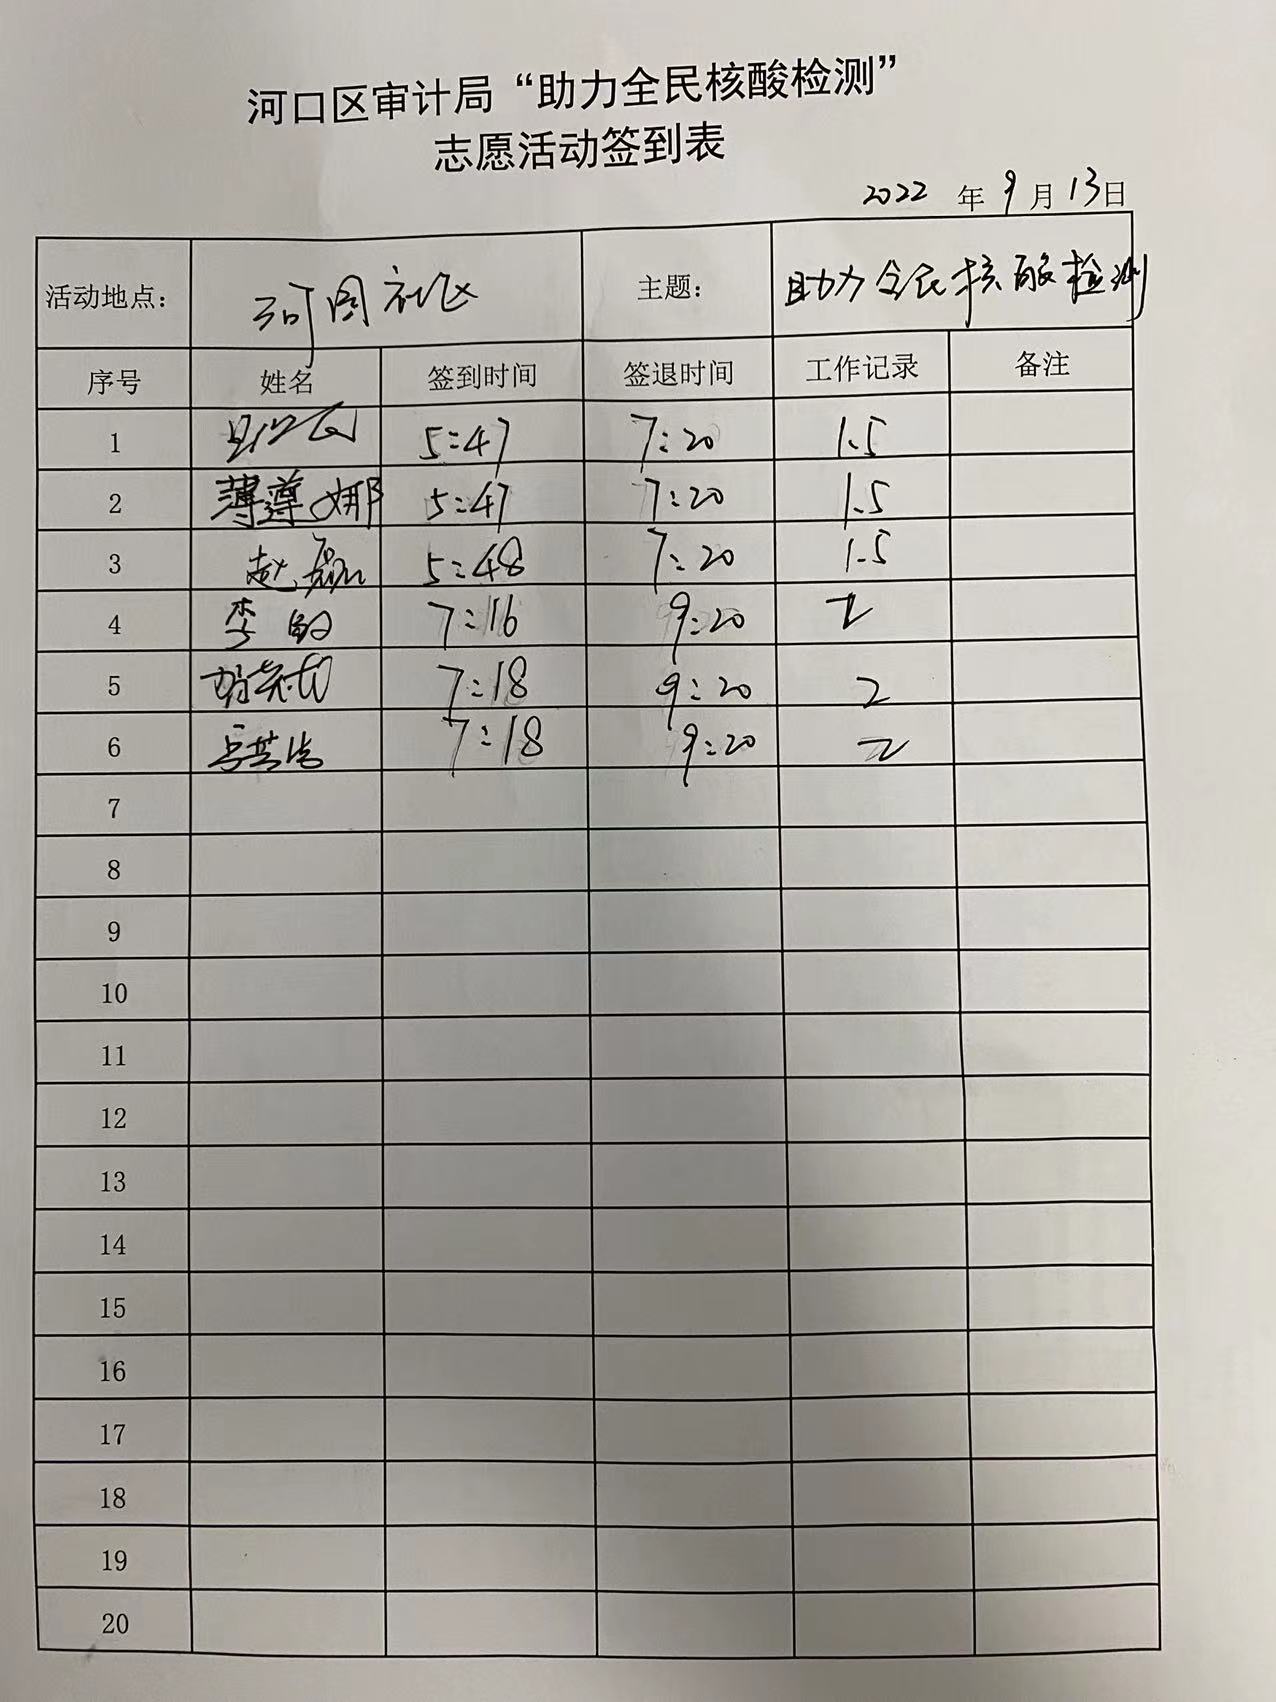 河口区审计局“助力全民核酸检测”
志愿活动签到表
2022 年 9 月 13 日
活动地点： 河园社区 主题： 助力全民核酸检测
序号 姓名 签到时间 签退时间 工作记录 备注
1 5:47 7:20 1.5
2 薄遵娜 5:47 7:20 1.5
3 赵 5:48 7:20 1.5
4 李 7:16 9:20 2
5 7:18 9:20 2
6 7:18 9:20 2
7
8
9
10
11
12
13
14
15
16
17
18
19
20